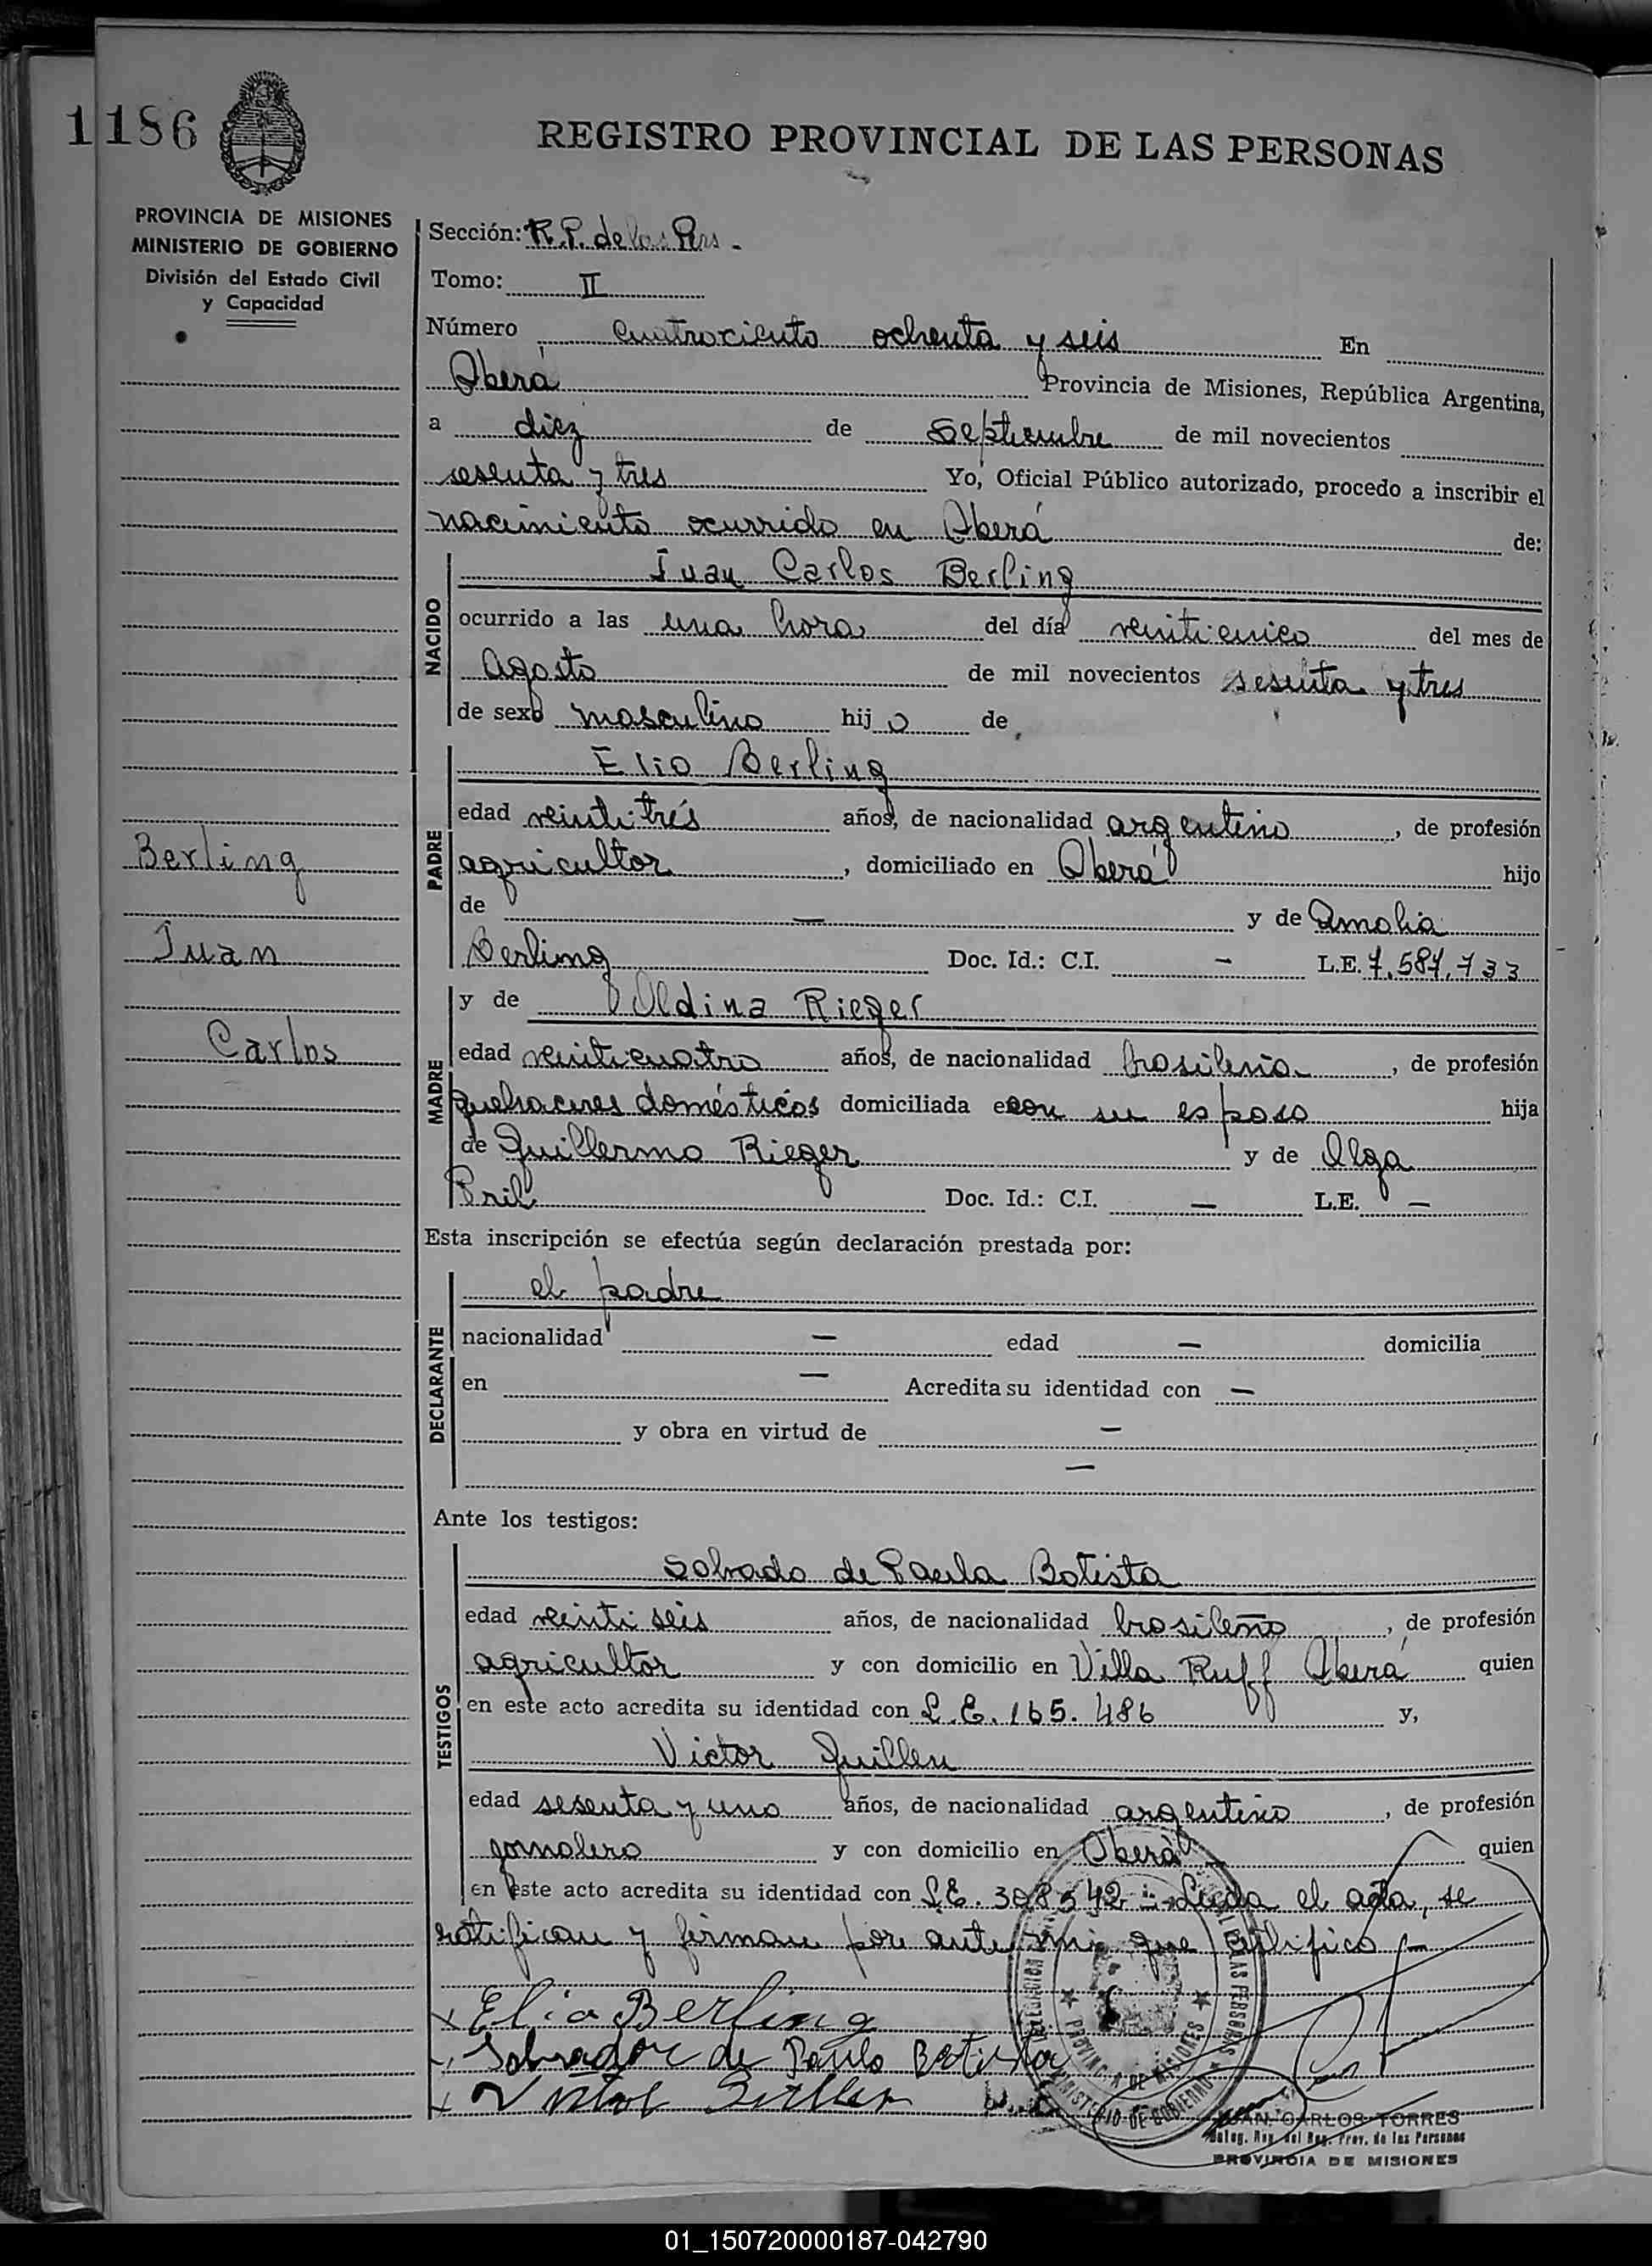 1186
REGISTRO PROVINCIAL DE LAS PERSONAS
PROVINCIA DE MISIONES
MINISTERIO DE GOBIERNO
División del Estado Civil
y Capacidad
Sección: R.P. de las Pers -
Tomo: II
Número cuatrociento ochenta y seis En
Oberá Provincia de Misiones, República Argentina,
a diez de septiembre de mil novecientos
sesenta y tres Yo, Oficial Público autorizado, procedo a inscribir el
nacimiento ocurrido en Oberá de:
NACIDO
Juan Carlos Berling
ocurrido a las una hora del día veinticinco del mes de
Agosto de mil novecientos sesenta y tres
de sexo masculino hijo de
PADRE
Elio Berling
edad veintitrés años, de nacionalidad argentino, de profesión
Berling
agricultor, domiciliado en Oberá hijo
de — y de Amalia
Juan
Berling Doc. Id.: C.I. — L.E. 7.587.733
MADRE
y de Oldina Rieger
Carlos
edad veinticuatro años, de nacionalidad brasileña, de profesión
quehaceres domésticos domiciliada con su esposo hija
de Guillermo Rieger y de Olga
Pril Doc. Id.: C.I. — L.E. —
Esta inscripción se efectúa según declaración prestada por:
DECLARANTE
el padre
nacionalidad — edad — domicilia
en — Acredita su identidad con —
y obra en virtud de —
—
Ante los testigos:
TESTIGOS
Solvado de Paula Batista
edad veinti seis años, de nacionalidad brasileño, de profesión
agricultor y con domicilio en Villa Ruff Oberá quien
en este acto acredita su identidad con L.E. 165.486 y,
Victor Guillen
edad sesenta y uno años, de nacionalidad argentino, de profesión
jornalero y con domicilio en Oberá quien
en este acto acredita su identidad con L.E. 308542 Leida el acta, se
ratifican y firman por ante mi que certifico
x Elio Berling
Solvador de Paulo Batista
x Victor Guillen
PROVINCIA DE MISIONES
MINISTERIO DE GOBIERNO
JUAN CARLOS TORRES
Deleg. Reg. del Reg. Prov. de las Personas
PROVINCIA DE MISIONES
01_150720000187-042790